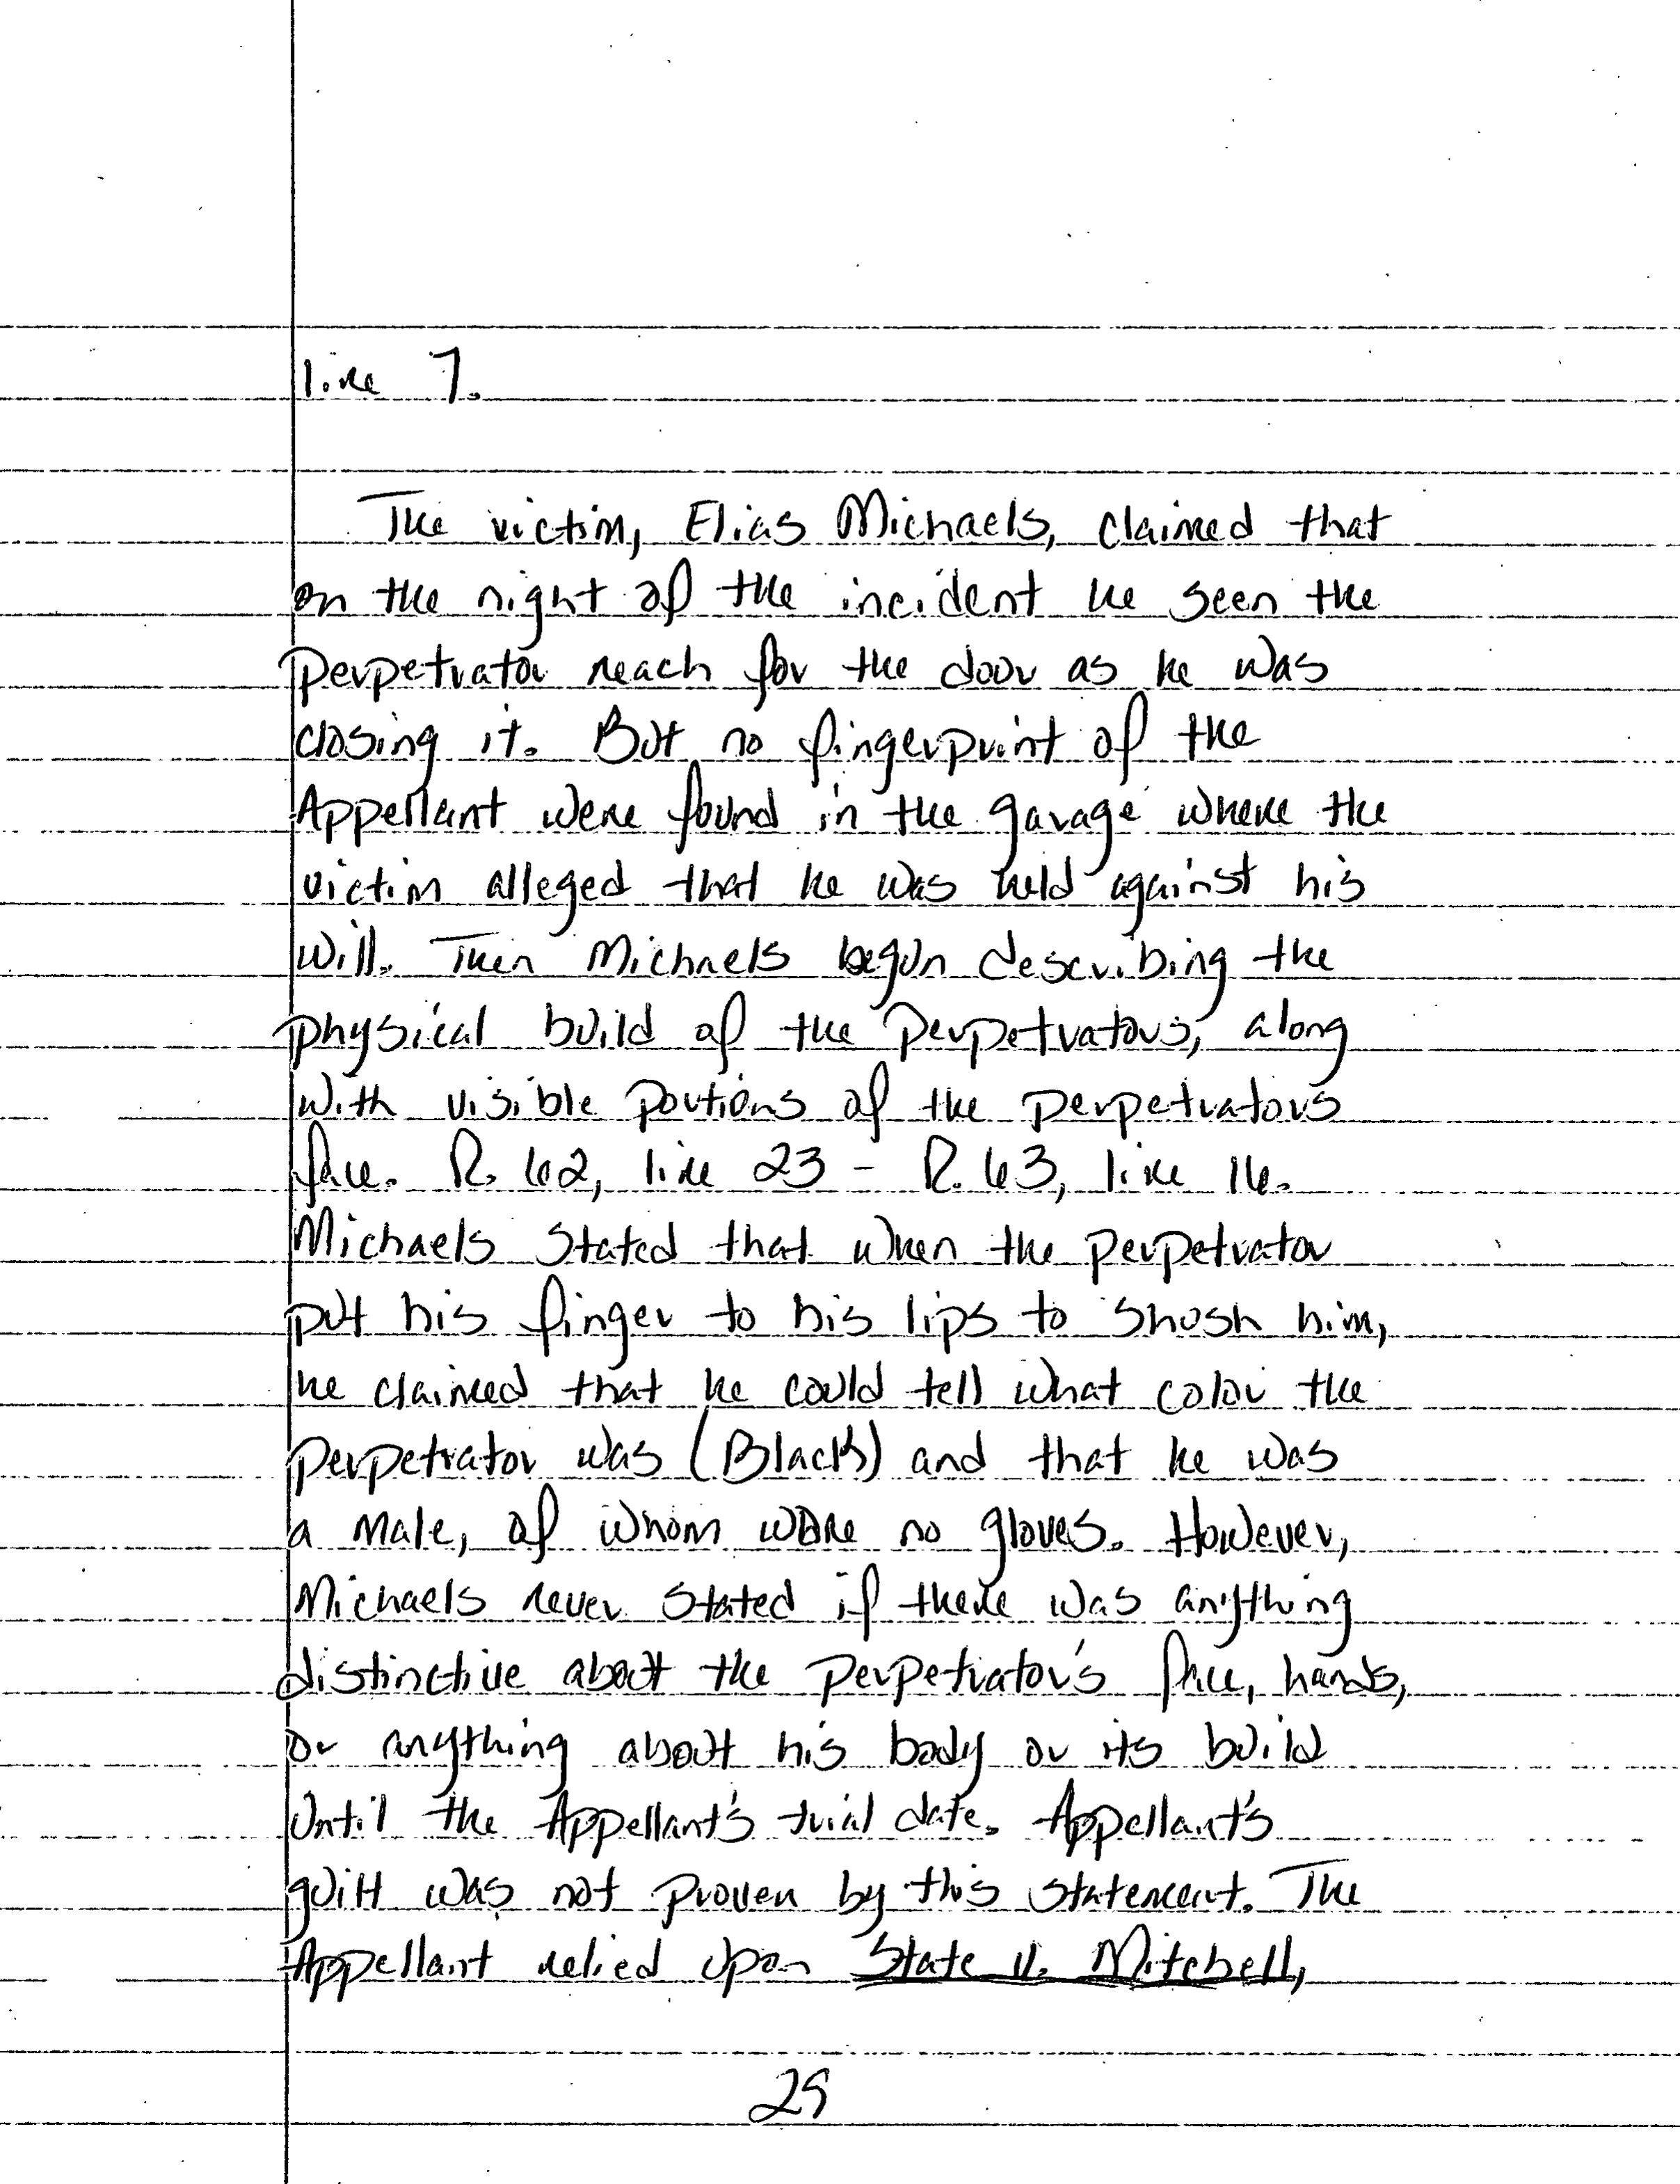 line 7.
The victim, Elias Michaels, claimed that
on the night of the incident he seen the
perpetrator reach for the door as he was
closing it. But no fingerprint of the
Appellant were found in the garage where the
victim alleged that he was held against his
will. Then Michaels begun describing the
physical build of the perpetrators, along
with visible portions of the perpetrators
face. R. 62, line 23 - R. 63, line 16.
Michaels stated that when the perpetrator
put his finger to his lips to shush him,
he claimed that he could tell what color the
perpetrator was (Black) and that he was
a male, of whom wore no gloves. However,
Michaels never stated if there was anything
distinctive about the perpetrator's face, hands,
or anything about his body or its build
until the Appellant's trial date. Appellant's
guilt was not proven by this statement. The
Appellant relied upon State v. Mitchell,
29